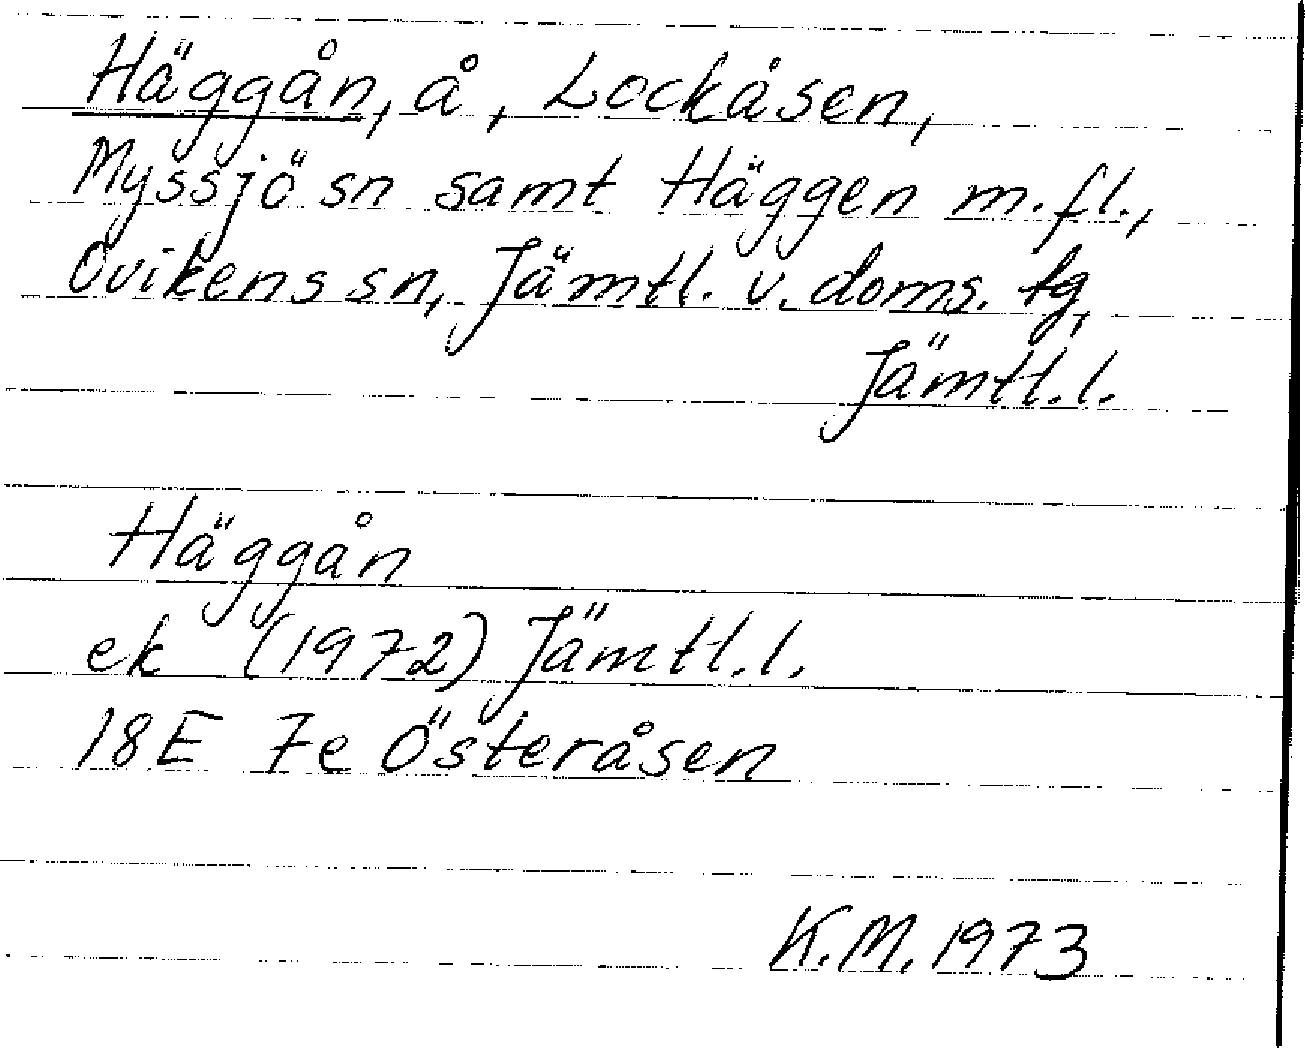 Häggån, å, Lockåsen,
Myssjö sn samt Häggen m.fl.,
Ovikens sn, Jämtl. v. doms. tg,
Jämtl. l.
Häggån
ek (1972) Jämtl. l.
18E 7e Österåsen
K.M. 1973